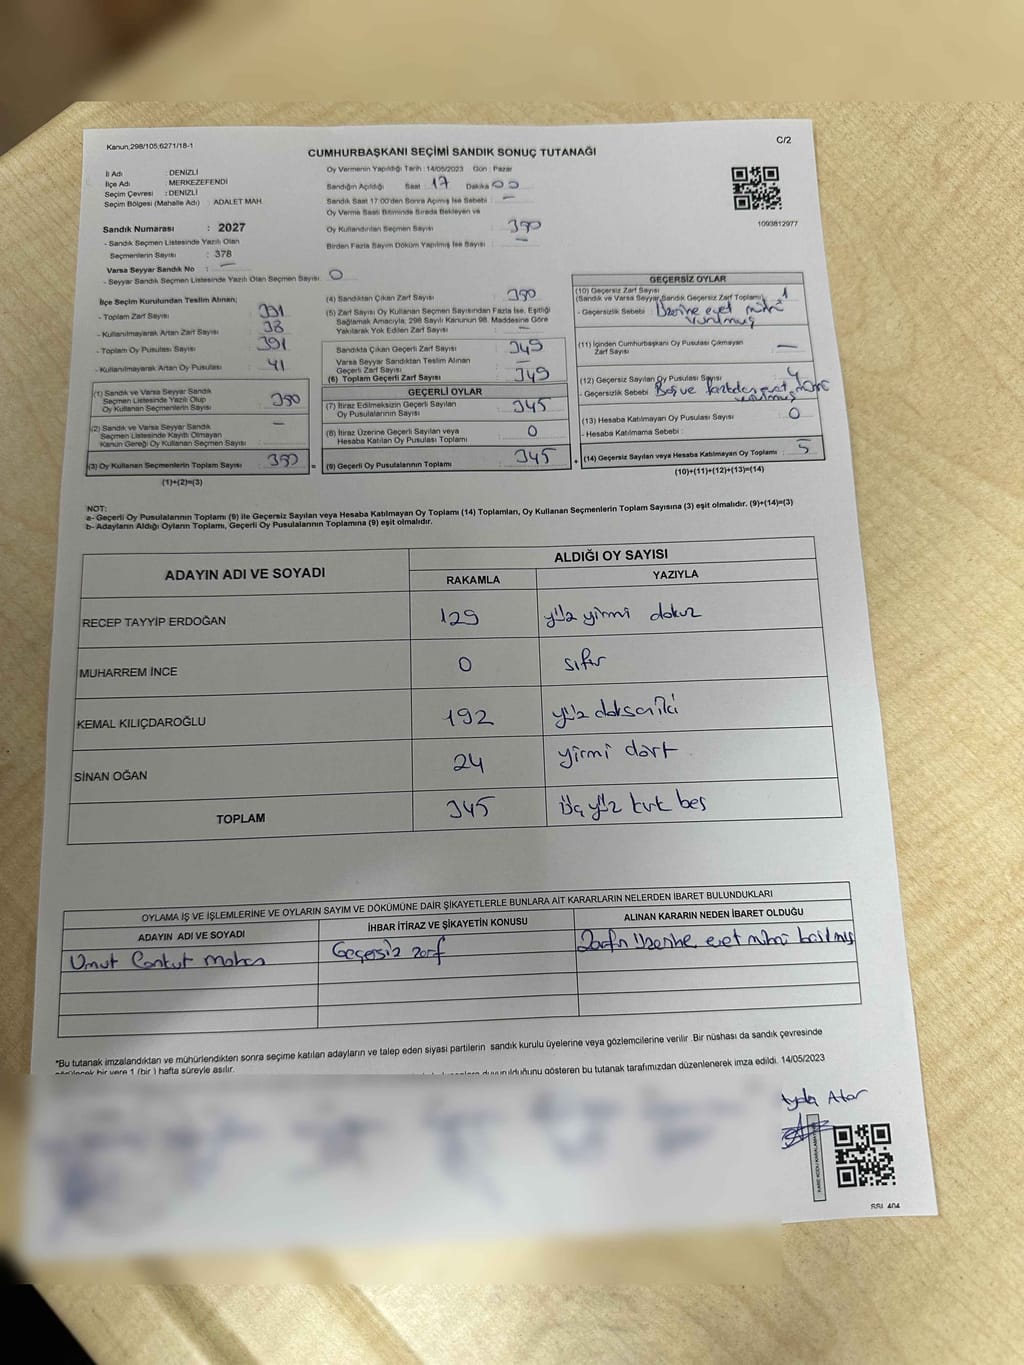 Kanun,298/105;6271/18-1
C/2
CUMHURBAŞKANI SEÇİMİ SANDIK SONUÇ TUTANAĞI
İl Adı : DENİZLİ
İlçe Adı : MERKEZEFENDİ
Seçim Çevresi : DENİZLİ
Seçim Bölgesi (Mahalle Adı) : ADALET MAH.
Sandık Numarası : 2027
- Sandık Seçmen Listesinde Yazılı Olan
Seçmenlerin Sayısı : 378
Varsa Seyyar Sandık No : —
- Seyyar Sandık Seçmen Listesinde Yazılı Olan Seçmen Sayısı : 0
Oy Vermenin Yapıldığı Tarih : 14/05/2023 Gün : Pazar
Sandığın Açıldığı Saat : 17 Dakika : 00
Sandık Saat 17:00'den Sonra Açımış İse Sebebi : —
Oy Verme Saati Bitiminde Sırada Bekleyen ve
Oy Kullandırılan Seçmen Sayısı : 350
Birden Fazla Sayım Döküm Yapılmış İse Sayısı : —
1093812977
İlçe Seçim Kurulundan Teslim Alınan;
- Toplam Zarf Sayısı : 391
- Kullanılmayarak Artan Zarf Sayısı : 38
- Toplam Oy Pusulası Sayısı : 391
- Kullanılmayarak Artan Oy Pusulası : 41
(1) Sandık ve Varsa Seyyar Sandık
Seçmen Listesinde Yazılı Olup
Oy Kullanan Seçmenlerin Sayısı : 350
(2) Sandık ve Varsa Seyyar Sandık
Seçmen Listesinde Kayıtlı Olmayan
Kanun Gereği Oy Kullanan Seçmen Sayısı : —
(3) Oy Kullanan Seçmenlerin Toplam Sayısı : 350
(1)+(2)=(3)
(4) Sandıktan Çıkan Zarf Sayısı : 350
(5) Zarf Sayısı Oy Kullanan Seçmen Sayısından Fazla İse, Eşitliği
Sağlamak Amacıyla, 298 Sayılı Kanunun 98. Maddesine Göre
Yakılarak Yok Edilen Zarf Sayısı : —
Sandıkta Çıkan Geçerli Zarf Sayısı : 349
Varsa Seyyar Sandıktan Teslim Alınan
Geçerli Zarf Sayısı : —
(6) Toplam Geçerli Zarf Sayısı : 349
GEÇERLİ OYLAR
(7) İtiraz Edilmeksizin Geçerli Sayılan
Oy Pusulalarının Sayısı : 345
(8) İtiraz Üzerine Geçerli Sayılan veya
Hesaba Katılan Oy Pusulası Toplamı : 0
(9) Geçerli Oy Pusulalarının Toplamı : 345
GEÇERSİZ OYLAR
(10) Geçersiz Zarf Sayısı
(Sandık ve Varsa Seyyar Sandık Geçersiz Zarf Toplamı) : 1
- Geçersizlik Sebebi : Üzerine evet mührü
vurulmuş
(11) İçinden Cumhurbaşkanı Oy Pusulası Çıkmayan
Zarf Sayısı : —
(12) Geçersiz Sayılan Oy Pusulası Sayısı : 4
- Geçersizlik Sebebi : Boş ve fazladan evet
vurulmuş
(13) Hesaba Katılmayan Oy Pusulası Sayısı : 0
- Hesaba Katılmama Sebebi :
(14) Geçersiz Sayılan veya Hesaba Katılmayan Oy Toplamı : 5
(10)+(11)+(12)+(13)=(14)
NOT:
a- Geçerli Oy Pusulalarının Toplamı (9) ile Geçersiz Sayılan veya Hesaba Katılmayan Oy Toplamı (14) Toplamları, Oy Kullanan Seçmenlerin Toplam Sayısına (3) eşit olmalıdır. (9)+(14)=(3)
b- Adayların Aldığı Oyların Toplamı, Geçerli Oy Pusulalarının Toplamına (9) eşit olmalıdır.
ADAYIN ADI VE SOYADI
ALDIĞI OY SAYISI
RAKAMLA YAZIYLA
RECEP TAYYİP ERDOĞAN 129 yüz yirmi dokuz
MUHARREM İNCE 0 sıfır
KEMAL KILIÇDAROĞLU 192 yüz doksan iki
SİNAN OĞAN 24 yirmi dört
TOPLAM 345 üç yüz kırk beş
OYLAMA İŞ VE İŞLEMLERİNE VE OYLARIN SAYIM VE DÖKÜMÜNE DAİR ŞİKAYETLERLE BUNLARA AİT KARARLARIN NELERDEN İBARET BULUNDUKLARI
ADAYIN ADI VE SOYADI İHBAR İTİRAZ VE ŞİKAYETİN KONUSU ALINAN KARARIN NEDEN İBARET OLDUĞU
Umut Geçersiz zarf Zarfın üzerine evet mührü basılmış
*Bu tutanak imzalandıktan ve mühürlendikten sonra seçime katılan adayların ve talep eden siyasi partilerin sandık kurulu üyelerine veya gözlemcilerine verilir. Bir nüshası da sandık çevresinde
görülecek bir yere 1 (bir ) hafta süreyle asılır.
duyurulduğunu gösteren bu tutanak tarafımızdan düzenlenerek imza edildi. 14/05/2023
Ayda Atar